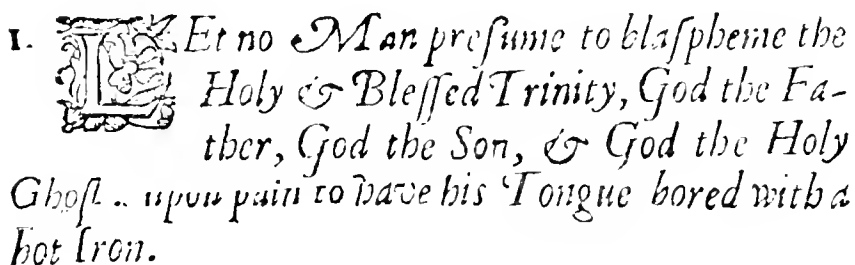 1. LEt no Man preſume to blaſpheme the
Holy & Bleſſed Trinity, God the Fa-
ther, God the Son, & God the Holy
Ghoſt .. upon pain to have his Tongue bored with a
hot Iron.